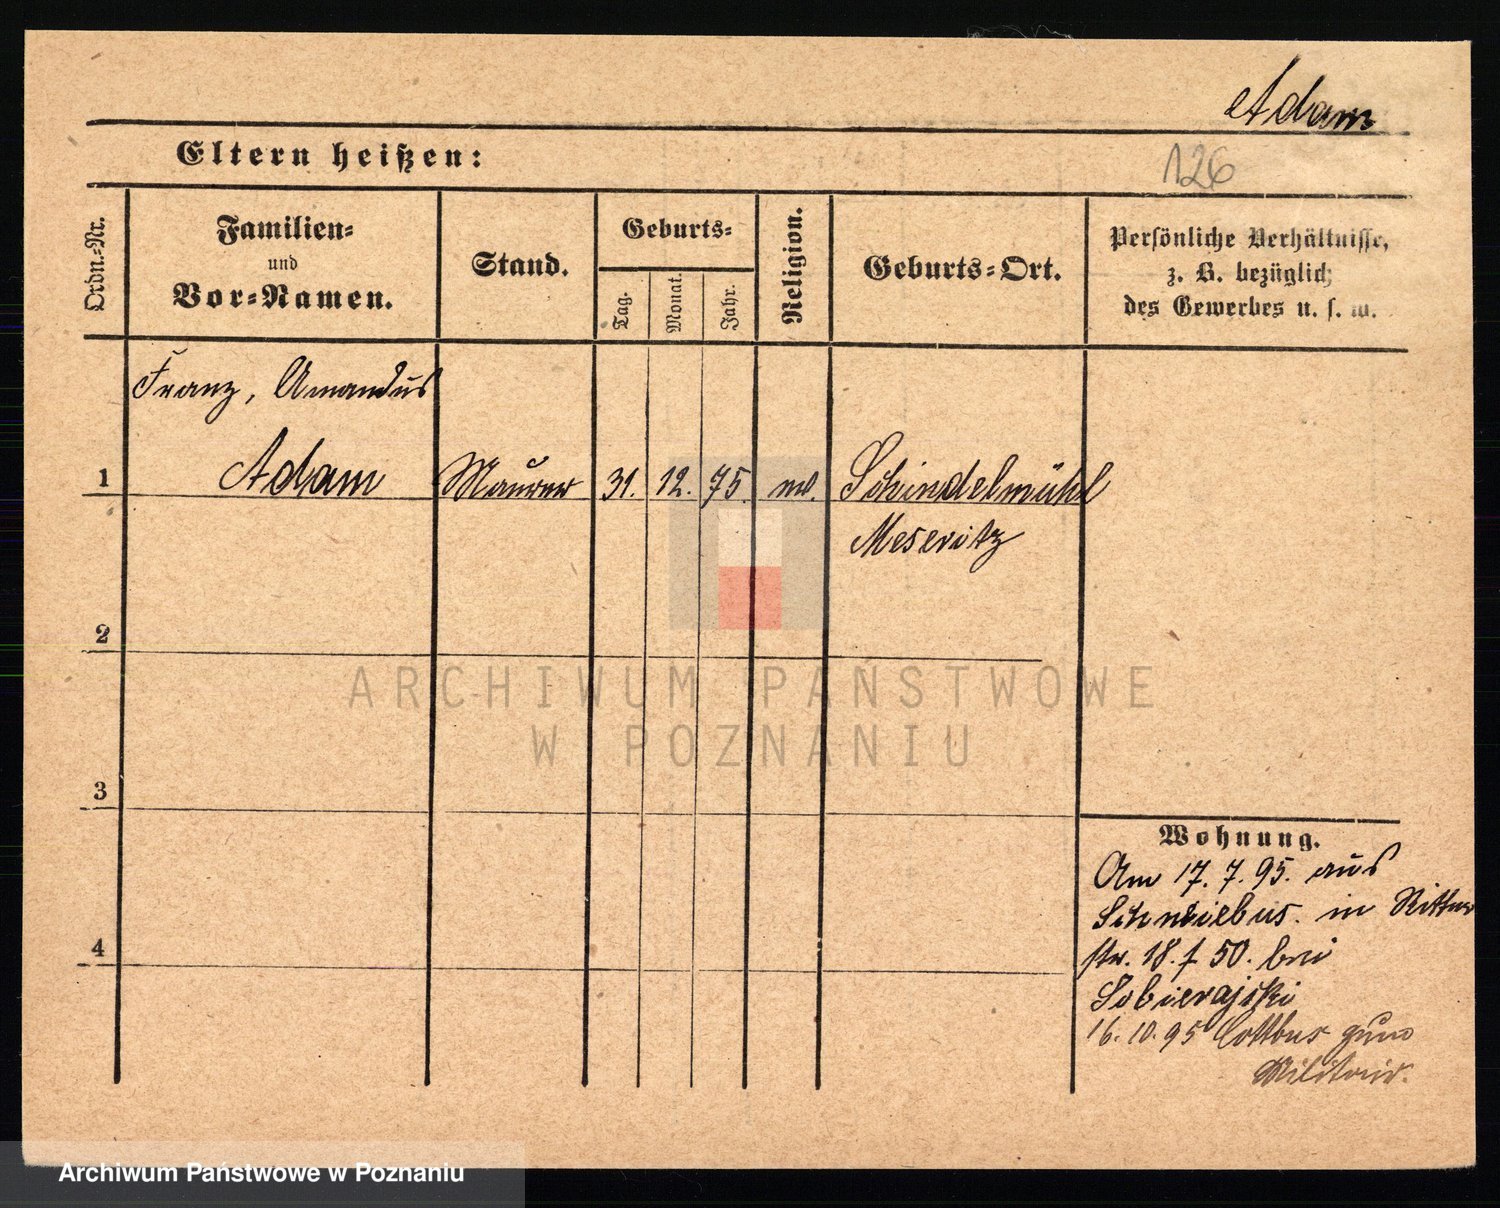 Adam
126
Eltern heißen:
Ordn.-Nr.
Familien-
und
Vor-Namen.
Stand.
Geburts-
Tag.
Monat.
Jahr.
Religion.
Geburts-Ort.
Persönliche Verhältnisse,
z. B. bezüglich
des Gewerbes u. s. w.
Franz, Amandus
1 Adam Maurer 31. 12. 75. ev. Schindelmühl
Meseritz
2
3
4
Wohnung.
Am 17. 7. 95. aus
Schwiebus. in Ritter
str. 18. f 50. bei
Sobierajski
16. 10. 95 Cottbus zum
Militair.
ARCHIWUM PAŃSTWOWE
W POZNANIU
Archiwum Państwowe w Poznaniu